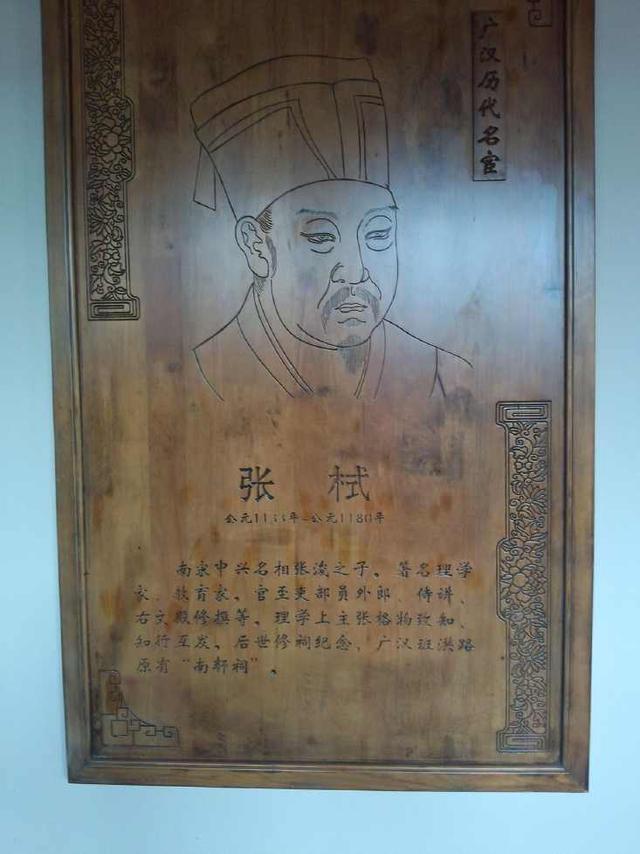 广汉历代名宦
张 栻
公元1133年-公元1180年
南宋中兴名相张浚之子。著名理学
家、教育家。官至吏部员外郎、侍讲、
右文殿修撰等。理学上主张格物致知、
知行互发。后世修祠纪念，广汉班洪路
原有“南轩祠”。